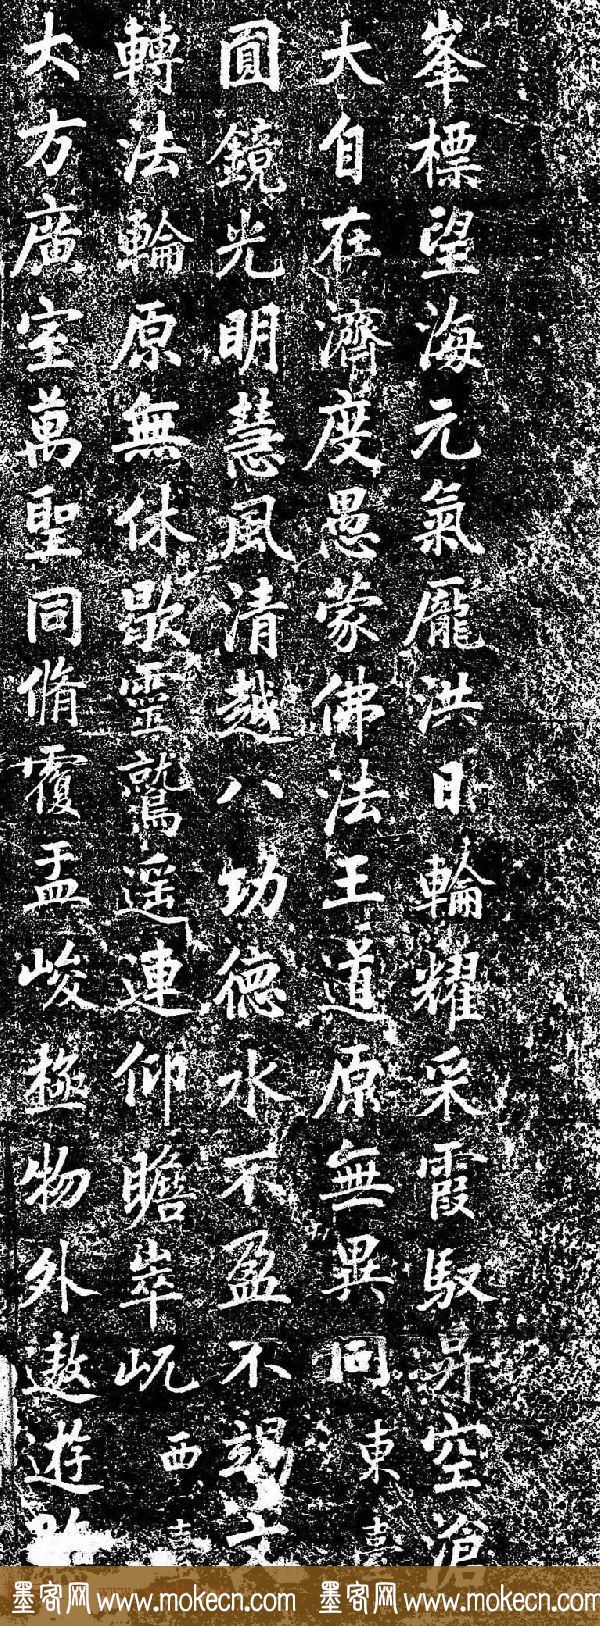 峯標望海元氣龐洪日輪耀采霞馭昇空滄
大自在濟度愚蒙佛法王道原無異同東
圓鏡光明慧風清越八功德水不盈不竭文
轉法輪原無休歇靈鷲遥連仰瞻崒屼西
大方廣室萬聖同脩覆盂峻極物外遨遊
墨客网 www.mokecn.com 墨客网 www.mokecn.com